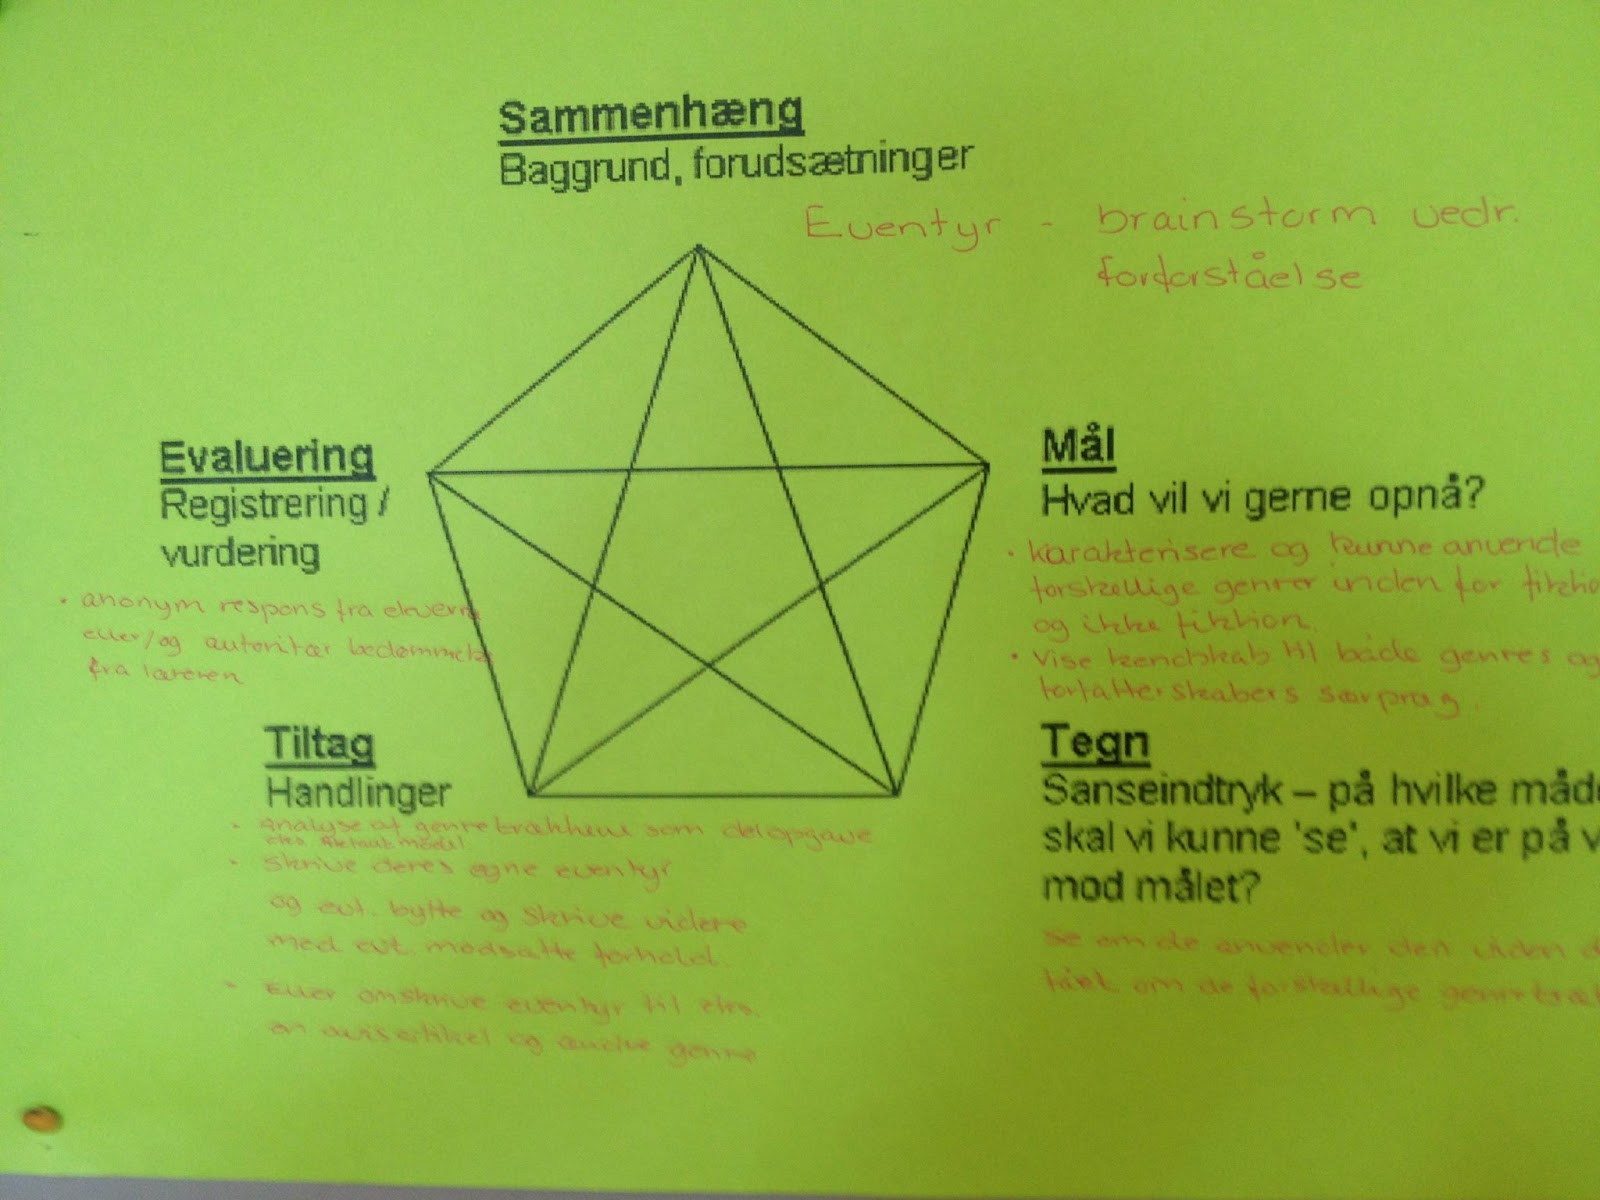 Sammenhæng
Baggrund, forudsætninger
Eventyr - brainstorm vedr.
forforståelse
Evaluering
Registrering /
vurdering
• anonym respons fra elverne
eller/og autoritær bedømmelse
fra læreren
Mål
Hvad vil vi gerne opnå?
• karakterisere og kunne anvende
forskellige genrer inden for fiktio
og ikke fiktion.
• Vise kendskab til både genres og
forfatterskabers særpræg.
Tiltag
Handlinger
• Analyse af genretrækkene som delopgave
eks. model
• Skrive deres egne eventyr
og evt. bytte og skrive videre
med evt. modsatte forhold.
• Eller omskrive eventyr til eks.
en avisartikel og andre genre
Tegn
Sanseindtryk – på hvilke måde
skal vi kunne 'se', at vi er på v
mod målet?
se om de anvender den viden d
fået om de forskellige genretræk